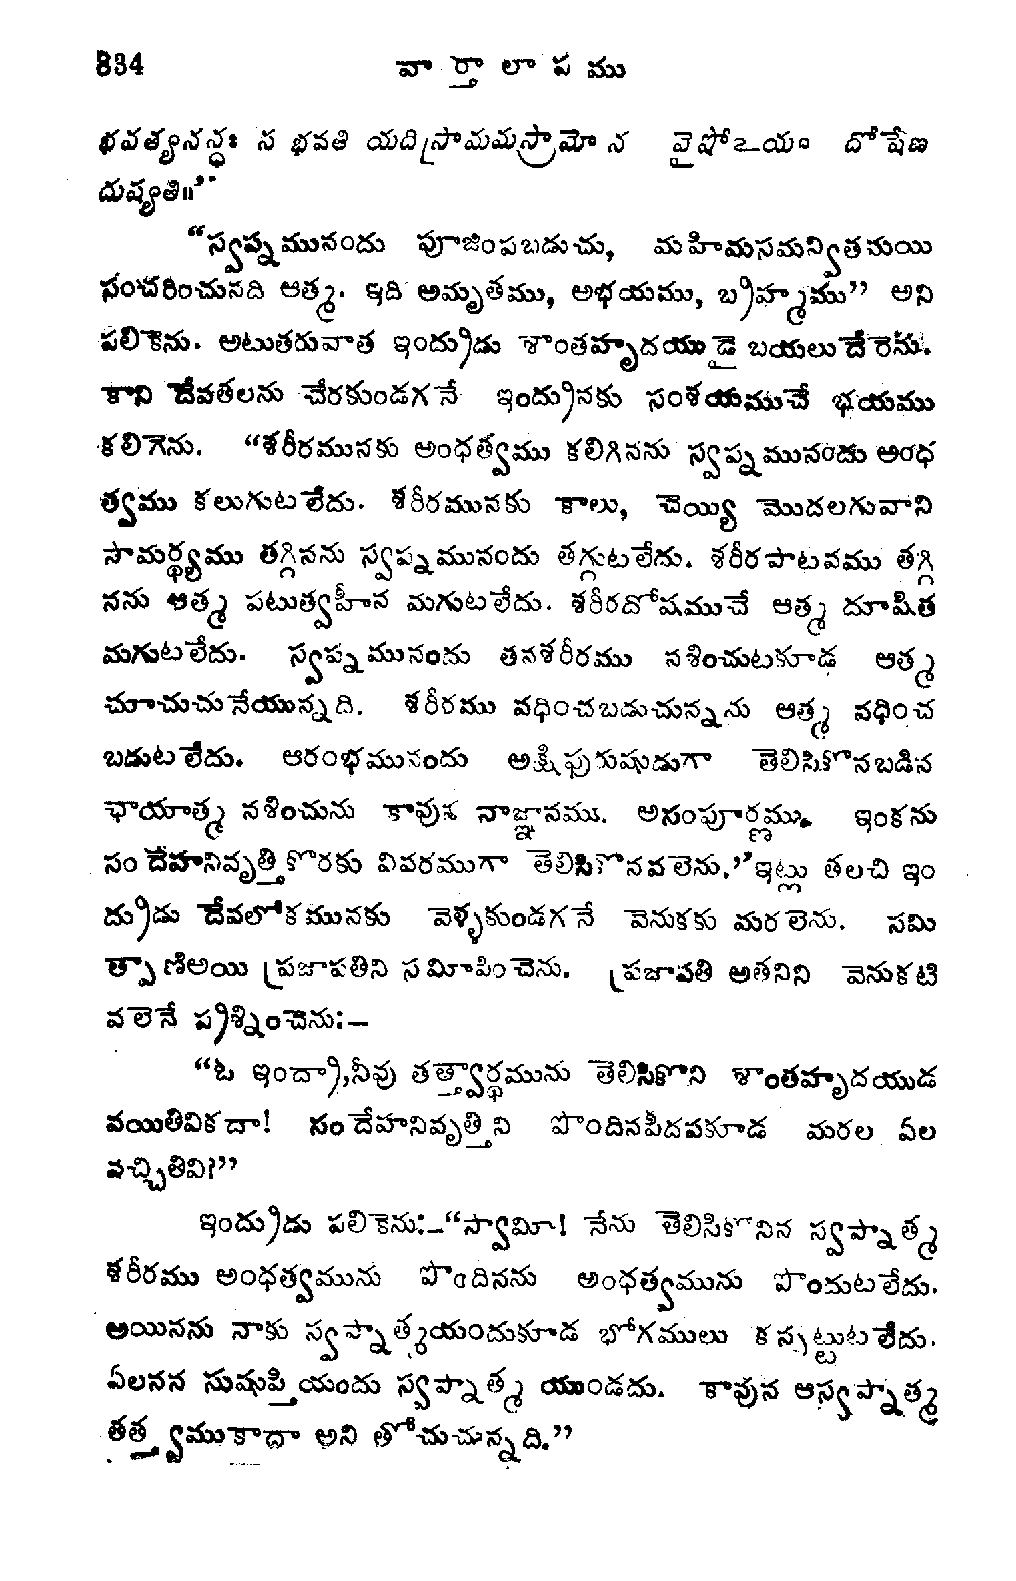 834 వార్తాలాపము
భవత్యనన్ధః స భవతి యదిస్రామమస్రామో న వైషోఽయం దోషేణ
దుష్యతి॥"
“స్వప్నమునందు పూజింపబడుచు, మహిమసమన్వితమయి
సంచరించునది ఆత్మ. ఇది అమృతము, అభయము, బ్రహ్మము” అని
పలికెను. అటుతరువాత ఇంద్రుడు శాంతహృదయుడై బయలుదేరెను.
కాని దేవతలను చేరకుండగనే ఇంద్రునకు సంశయముచే భయము
కలిగెను. “శరీరమునకు అంధత్వము కలిగినను స్వప్నమునందు అంధ
త్వము కలుగుటలేదు. శరీరమునకు కాలు, చెయ్యి మొదలగువాని
సామర్థ్యము తగ్గినను స్వప్నమునందు తగ్గుటలేదు. శరీరపాటవము తగ్గి
నను ఆత్మ పటుత్వహీన మగుటలేదు. శరీరదోషముచే ఆత్మ దూషిత
మగుటలేదు. స్వప్నమునందు తనశరీరము నశించుటకూడ ఆత్మ
చూచుచునేయున్నది. శరీరము వధించబడుచున్నను ఆత్మ వధించ
బడుటలేదు. ఆరంభమునందు అక్షిపురుషుడుగా తెలిసికొనబడిన
ఛాయాత్మ నశించును కావున నాజ్ఞానము అసంపూర్ణము. ఇంకను
సందేహనివృత్తికొరకు వివరముగా తెలిసికొనవలెను.”ఇట్లు తలచి ఇం
ద్రుడు దేవలోకమునకు వెళ్ళకుండగనే వెనుకకు మరలెను. సమి
త్పాణిఅయి ప్రజాపతిని సమీపించెను. ప్రజాపతి అతనిని వెనుకటి
వలెనే ప్రశ్నించెను:—
“ఓ ఇంద్రా,నీవు తత్త్వార్థమును తెలిసికొని శాంతహృదయుడ
వయితివికదా! సందేహనివృత్తిని పొందినపిదపకూడ మరల ఏల
వచ్చితివి?”
ఇంద్రుడు పలికెను:—“స్వామీ! నేను తెలిసికొనిన స్వప్నాత్మ
శరీరము అంధత్వమును పొందినను అంధత్వమును పొందుటలేదు.
అయినను నాకు స్వప్నాత్మయందుకూడ భోగములు కన్పట్టుటలేదు.
ఏలనన సుషుప్తియందు స్వప్నాత్మ యుండదు. కావున ఆస్వప్నాత్మ
తత్త్వముకాదా అని తోచుచున్నది.”